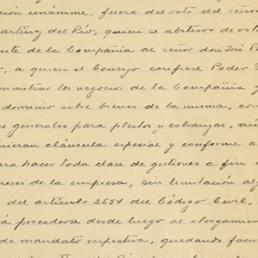 ción unánime, fuera del voto del señor
artínez del Río, quien se abstuvo de vota
nte de la Compañía al señor don José P
, a quien el Consejo confiere Poder G
ministrar los negocios de la Compañía y
dominio sobre bienes de la misma, con
s generales para pleitos y cobranzas, aú
uieran cláusula especial y conforme a
era hacer toda clase de gestiones a fin
reses de la empresa, sin limitación alg
del artículo 2554 del Código Civil,
á procederse desde luego al otorgamien
de mandato respectiva, quedando facu